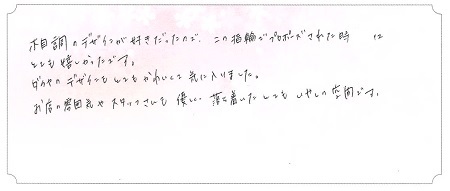 木目調のデザインが好きだったので、この指輪でプロポーズされた時に
とても嬉しかったです。
ダイヤのデザインもとてもかわいくて気に入りました。
お店の雰囲気やスタッフさんも優しい、落ち着いたとてもいやしの空間です。